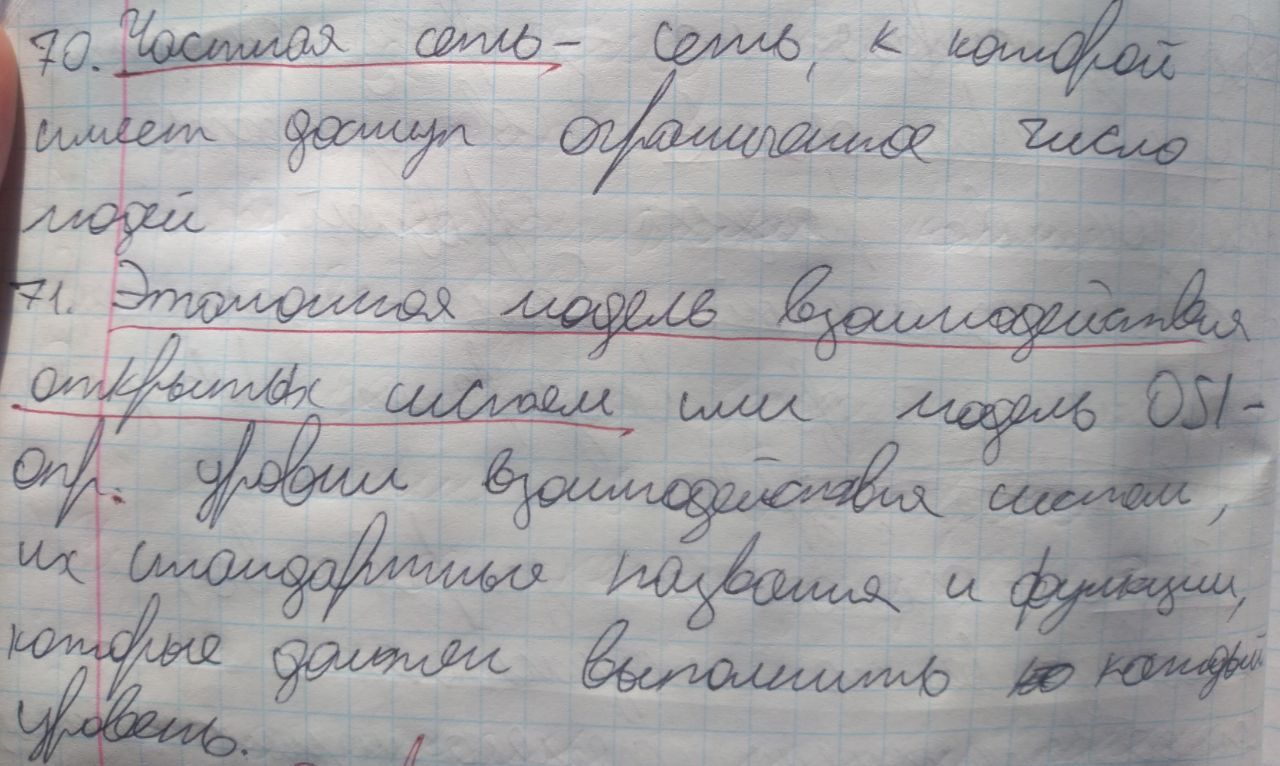 70. Частная сеть - сеть, к которой
имеет доступ ограниченное число
людей
71. Эталонная модель взаимодействия
открытых систем или модель OSI -
опр. уровни взаимодействия систем,
их стандартные названия и функции,
которые должен выполнить каждый
уровень.